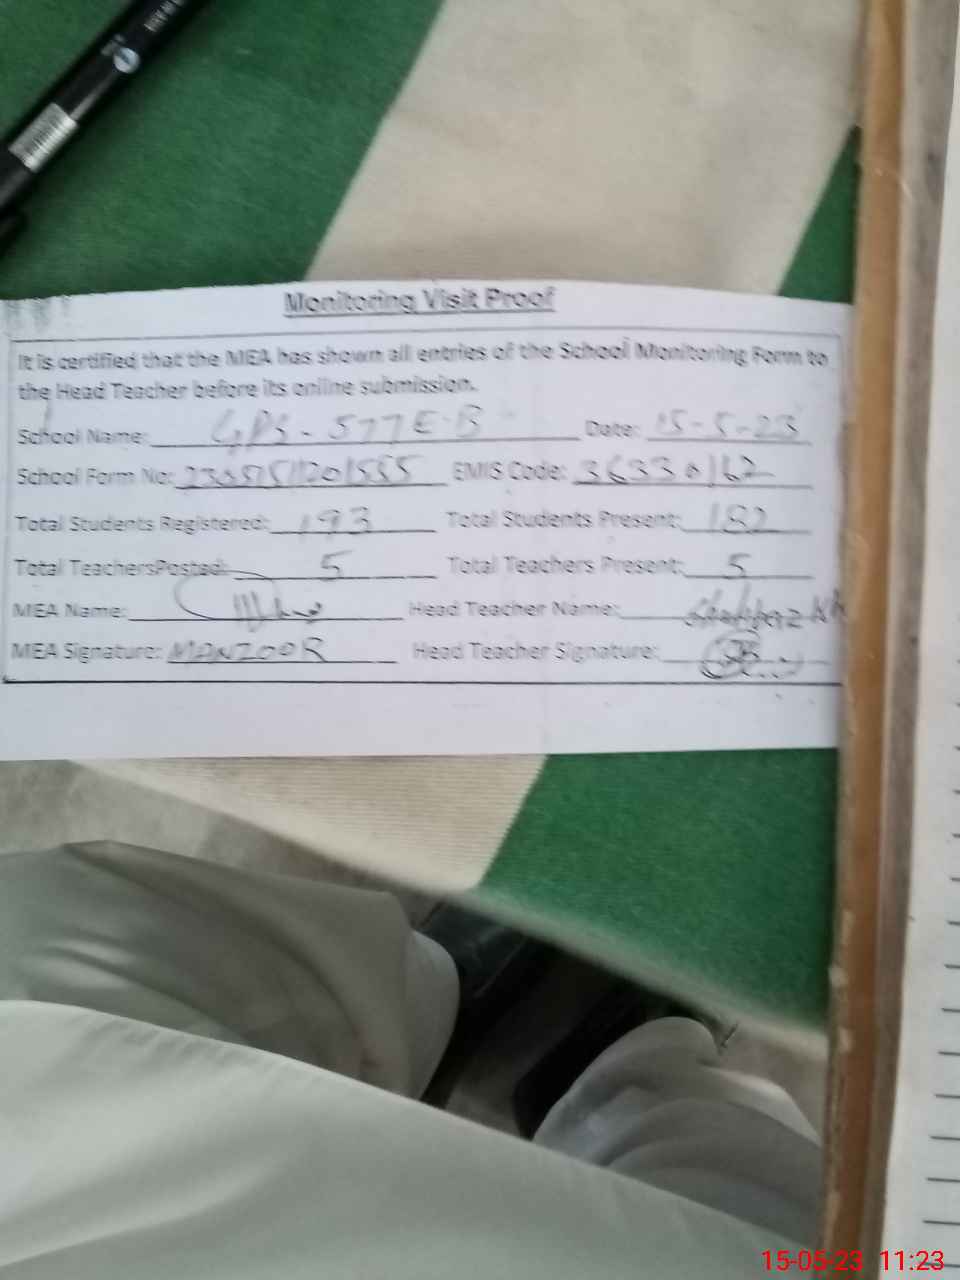 Monitoring Visit Proof
It is certified that the MEA has shown all entries of the School Monitoring Form to
the Head Teacher before its online submission.
School Name: GPS - 577 E-B Date: 15-5-23
School Form No: EMIS Code: 36330162
Total Students Registered: 193 Total Students Present: 182
Total TeachersPosted: 5 Total Teachers Present: 5
MEA Name: Head Teacher Name:
MEA Signature: MANZOOR Head Teacher Signature:
15-05-23 11:23